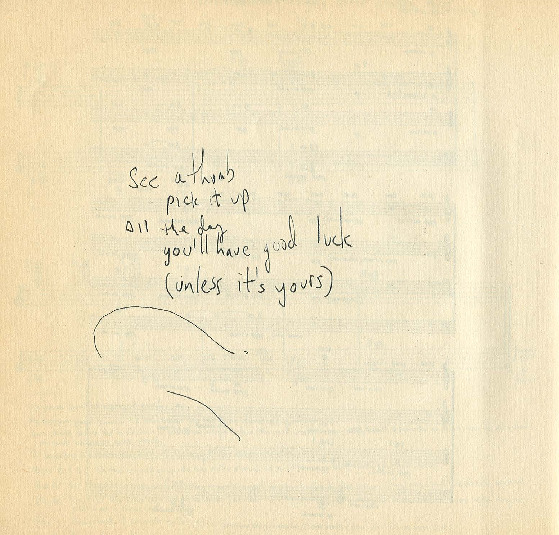 See a thumb
pick it up
All the day
you'll have good luck
(unless it's yours)